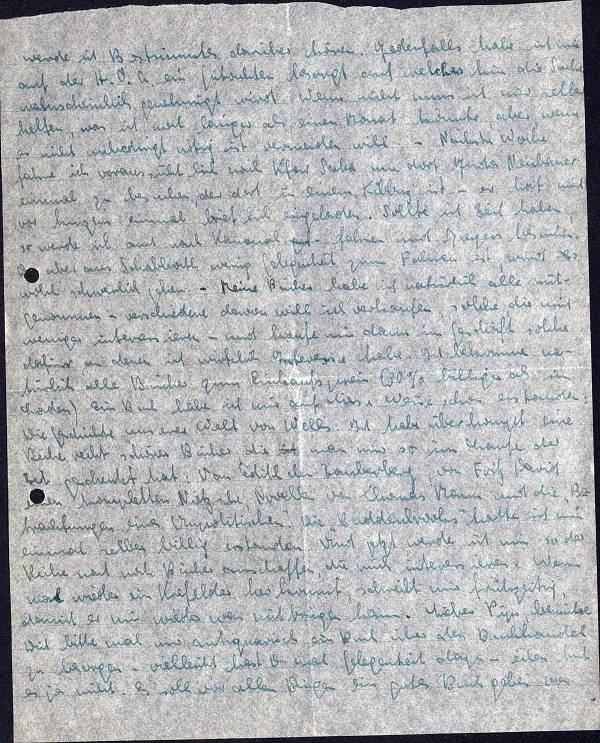 werde ich Bestimmtes darüber hören. Jedenfalls habe ich mir
auf der H.O.G. ein Gutachten besorgt auf welches hin die Sache
wahrscheinlich genehmigt wird. Wenn nicht muss ich mir selber
helfen, was ich auch länger als einen Monat könnte aber wenn
es nicht unbedingt nötig ist vermeiden will. - Nächste Woche
fahre ich voraussichtlich nach Kfar Saba um dort
einmal zu besuchen, der dort in einem Kibbuz ist - er hat mich
vor kurzem einmal brieflich eingeladen. Sollte ich Zeit haben,
so werde ich auch nach fahren und besuchen.
Da aber am Schabbath wenig Gelegenheit zum Fahren ist, wird es
wohl schwerlich gehen. - Meine Bücher habe ich natürlich alle mit-
genommen - verschiedene davon will ich verkaufen, solche die mich
weniger interessieren - und kaufe mir dann im Geschäft solche
dafür an denen ich wirklich Interesse habe. Ich bekomme na-
türlich alle Bücher zum Einkaufspreis (30% billiger als im
Laden) Ein Buch habe ich mir auf diese Weise schon erstanden:
Die Geschichte unserer Welt von Wells. Ich habe überhaupt eine
Reihe recht schöner Bücher die man mir so im Laufe der
Zeit geschenkt hat. Von Edith von Fritz David
einen kompletten Nietzsche, Novellen von Thomas Mann und die "Be-
trachtungen eines Unpolitischen". Die "Buddenbrooks" hatte ich mir
einmal selber billig erstanden. Und jetzt werde ich mir so der
Reihe nach noch Bücher anschaffen, die mich interessieren. Wenn
mal wieder ein Krefelder her kommt, schreibt mir frühzeitig,
damit er mir wieder was mitbringen kann. Lieber bemühe
Dich bitte mal mir antiquarisch ein Buch über den Buchhandel
zu besorgen - vielleicht hast Du mal Gelegenheit dazu - eilen tut
es ja nicht. Es soll vor allen Dingen ein gutes Buch geben von